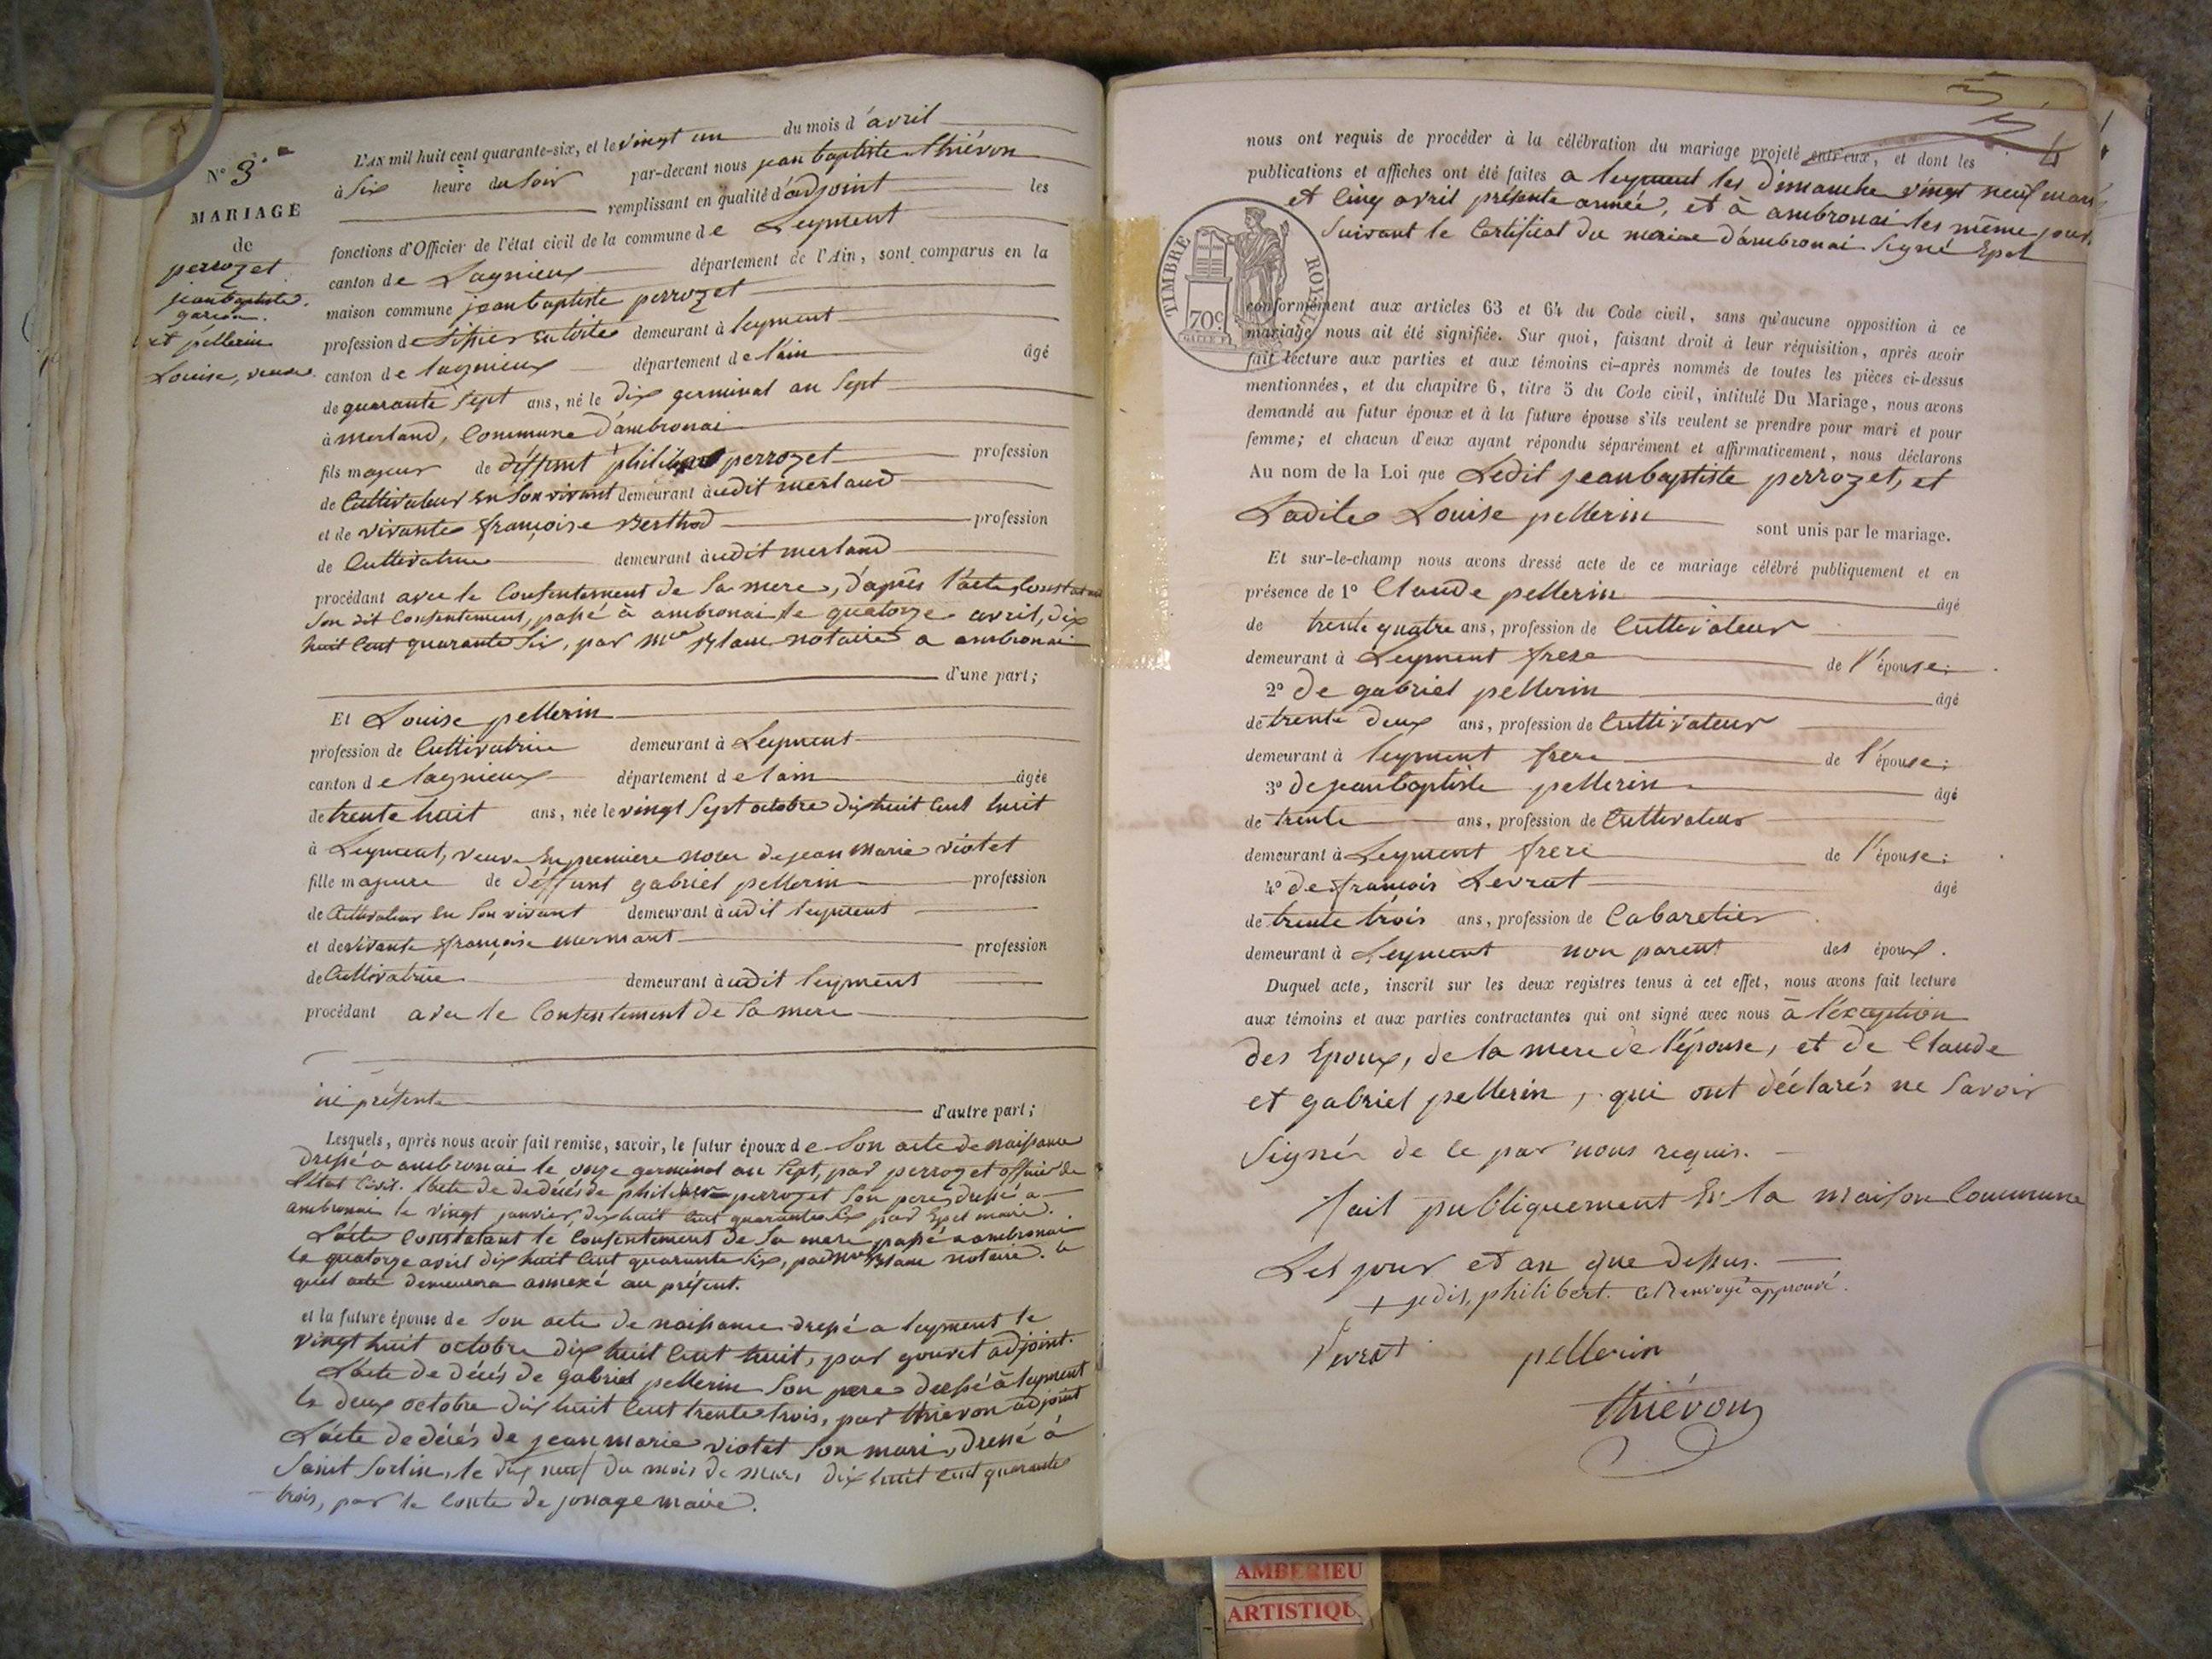 N° 3.
MARIAGE
de
perrozet
jean baptiste.
garcon.
et pellerin
Louise, veuve.
L'AN mil huit cent quarante-six, et le vingt un du mois d'avril
à Six heure du Soir par-devant nous jean baptiste thiévon
remplissant en qualité d'adjoint les
fonctions d'Officier de l'état civil de la commune de Leyment
canton de Lagnieux département de l'Ain, sont comparus en la
maison commune jean baptiste perrozet
profession de demeurant à leyment
canton de lagnieux département de l'ain âgé
de quarante Sept ans, né le Dix germinal an Sept
à merland, Commune d'ambronai
fils majeur de déffunt perrozet profession
de Cultivateur en Son vivant demeurant audit merland
et de vivante françoise Berthod profession
de Cultivatrice demeurant audit merland
procédant avec le Consentement de Sa mere, d'après l'acte Constatant
Son dit Consentement, passé à ambronai le quatorze avril, dix
huit Cent quarante Six, par Mre Blanc notaire a ambronai
d'une part;
Et Louise pellerin
profession de Cultivatrice demeurant à Leyment
canton de lagnieux département de lain âgée
de trente huit ans, née le vingt Sept octobre Dix huit Cent huit
à Leyment, veuve En premiere noce de jean Marie viotet
fille majeure de déffunt gabriel pellerin profession
de Cultivateur En Son vivant demeurant audit leyment
et de vivante françoise mermant profession
de Cultivatrice demeurant audit leyment
procédant avec le Consentement de Sa mere
ici présente d'autre part;
Lesquels, après nous avoir fait remise, savoir, le futur époux de Son acte de naissance
Dressé a ambronai le onze germinal an Sept, par perrozet officier de
l'état Civil. l'acte de dedécés de perrozet Son pere, dressé a
ambronai le vingt janvier, dix huit Cent quarante Six par Epet maire.
L'acte Constatant le Consentement de Sa mere passé a ambronai
le quatorze avril dix huit Cent quarante Six, par Mre Blanc notaire. le
quel acte demeurera annexé au présent.
et la future épouse de Son acte de naissance dressé a leyment le
vingt huit octobre dix huit Cent huit, par gouvet adjoint.
L'acte de décés de gabriel pellerin Son pere dressé à leyment
le deux octobre dix huit Cent trente trois, par thiévon adjoint
L'acte de décés de jean marie viotet Son mari, dressé à
Saint Sorlin, le dix neuf du mois de mars dix huit Cent quarante
trois, par le Conte de jonage maire.
4
nous ont requis de procéder à la célébration du mariage projeté entr'eux, et dont les
publications et affiches ont été faites a leyment les Dimanche vingt neuf mars
et Cinq avril présente année, et à ambronai les même jour,
Suivant le Certificat du maire d'ambronai Signé Epet
TIMBRE ROYAL
70c
conformément aux articles 63 et 64 du Code civil, sans qu'aucune opposition à ce
mariage nous ait été signifiée. Sur quoi, faisant droit à leur réquisition, après avoir
fait lecture aux parties et aux témoins ci-après nommés de toutes les pièces ci-dessus
mentionnées, et du chapitre 6, titre 5 du Code civil, intitulé Du Mariage, nous avons
demandé au futur époux et à la future épouse s'ils veulent se prendre pour mari et pour
femme; et chacun d'eux ayant répondu séparément et affirmativement, nous déclarons
Au nom de la Loi que Ledit jean baptiste perrozet, et
Ladite Louise pellerin sont unis par le mariage.
Et sur-le-champ nous avons dressé acte de ce mariage célébré publiquement et en
présence de 1° Claude pellerin âgé
de trente quatre ans, profession de Cultivateur
demeurant à Leyment frere de l'épouse;
2° De gabriel pellerin âgé
de trente deux ans, profession de Cultivateur
demeurant à leyment frere de l'épouse;
3° de jean baptiste pellerin âgé
de trente ans, profession de Cultivateur
demeurant à Leyment frere de l'épouse;
4° de françois Levrat âgé
de trente trois ans, profession de Cabaretier
demeurant à Leyment non parent des époux.
Duquel acte, inscrit sur les deux registres tenus à cet effet, nous avons fait lecture
aux témoins et aux parties contractantes qui ont signé avec nous à l'éxception
des Epoux, de la mere de l'épouse, et de Claude
et gabriel pellerin, qui ont déclarés ne Savoir
Signér de Ce par nous requis.
fait publiquement En la maison Commune
Les jour et an que dessus.
+ jedis, philibert. Ce Renvoye approuvé.
Levrat pellerin
thiévon
AMBERIEU
ARTISTIQU